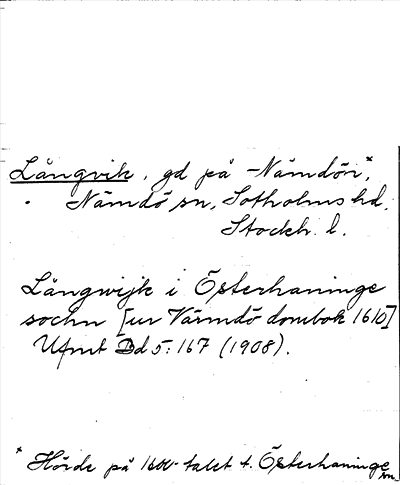 Långvik, gd på Nämdön*,
Nämdö sn, Sotholms hd,
Stockh. l.
Långwijk i Österhaninge
sochn [ur Värmdö dombok 1610]
Ufmt Bd 5: 167 (1908).
* Hörde på 1600-talet t. Österhaninge sn